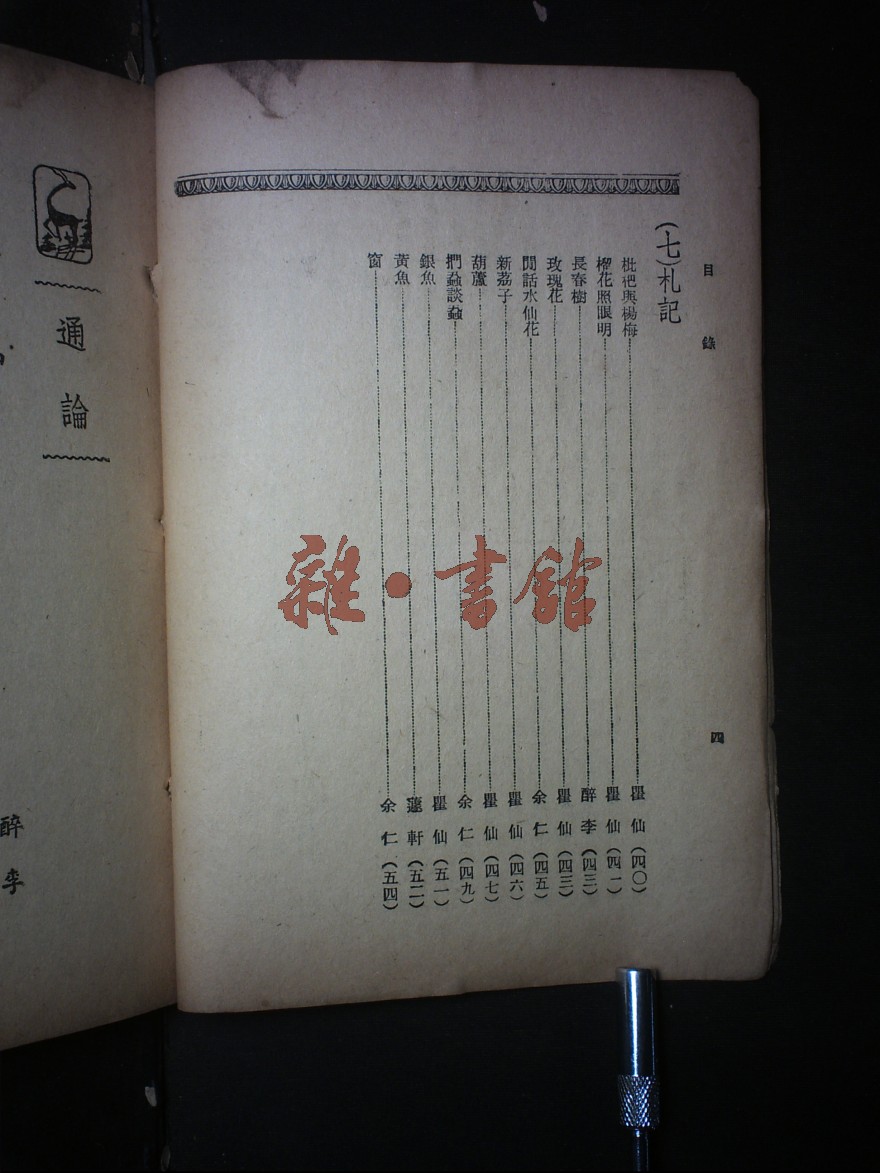 目錄
四
(七)札記
枇杷與楊梅 瞿仙(四〇)
榴花照眼明 瞿仙(四一)
長春樹 醉李(四三)
玫瑰花 瞿仙(四三)
閒話水仙花 余仁(四五)
新荔子 瞿仙(四六)
葫蘆 瞿仙(四七)
捫蝨談蝨 余仁(四九)
銀魚 瞿仙(五一)
黃魚 蘧軒(五二)
窗 余仁(五四)
雜·書館
通論
醉李